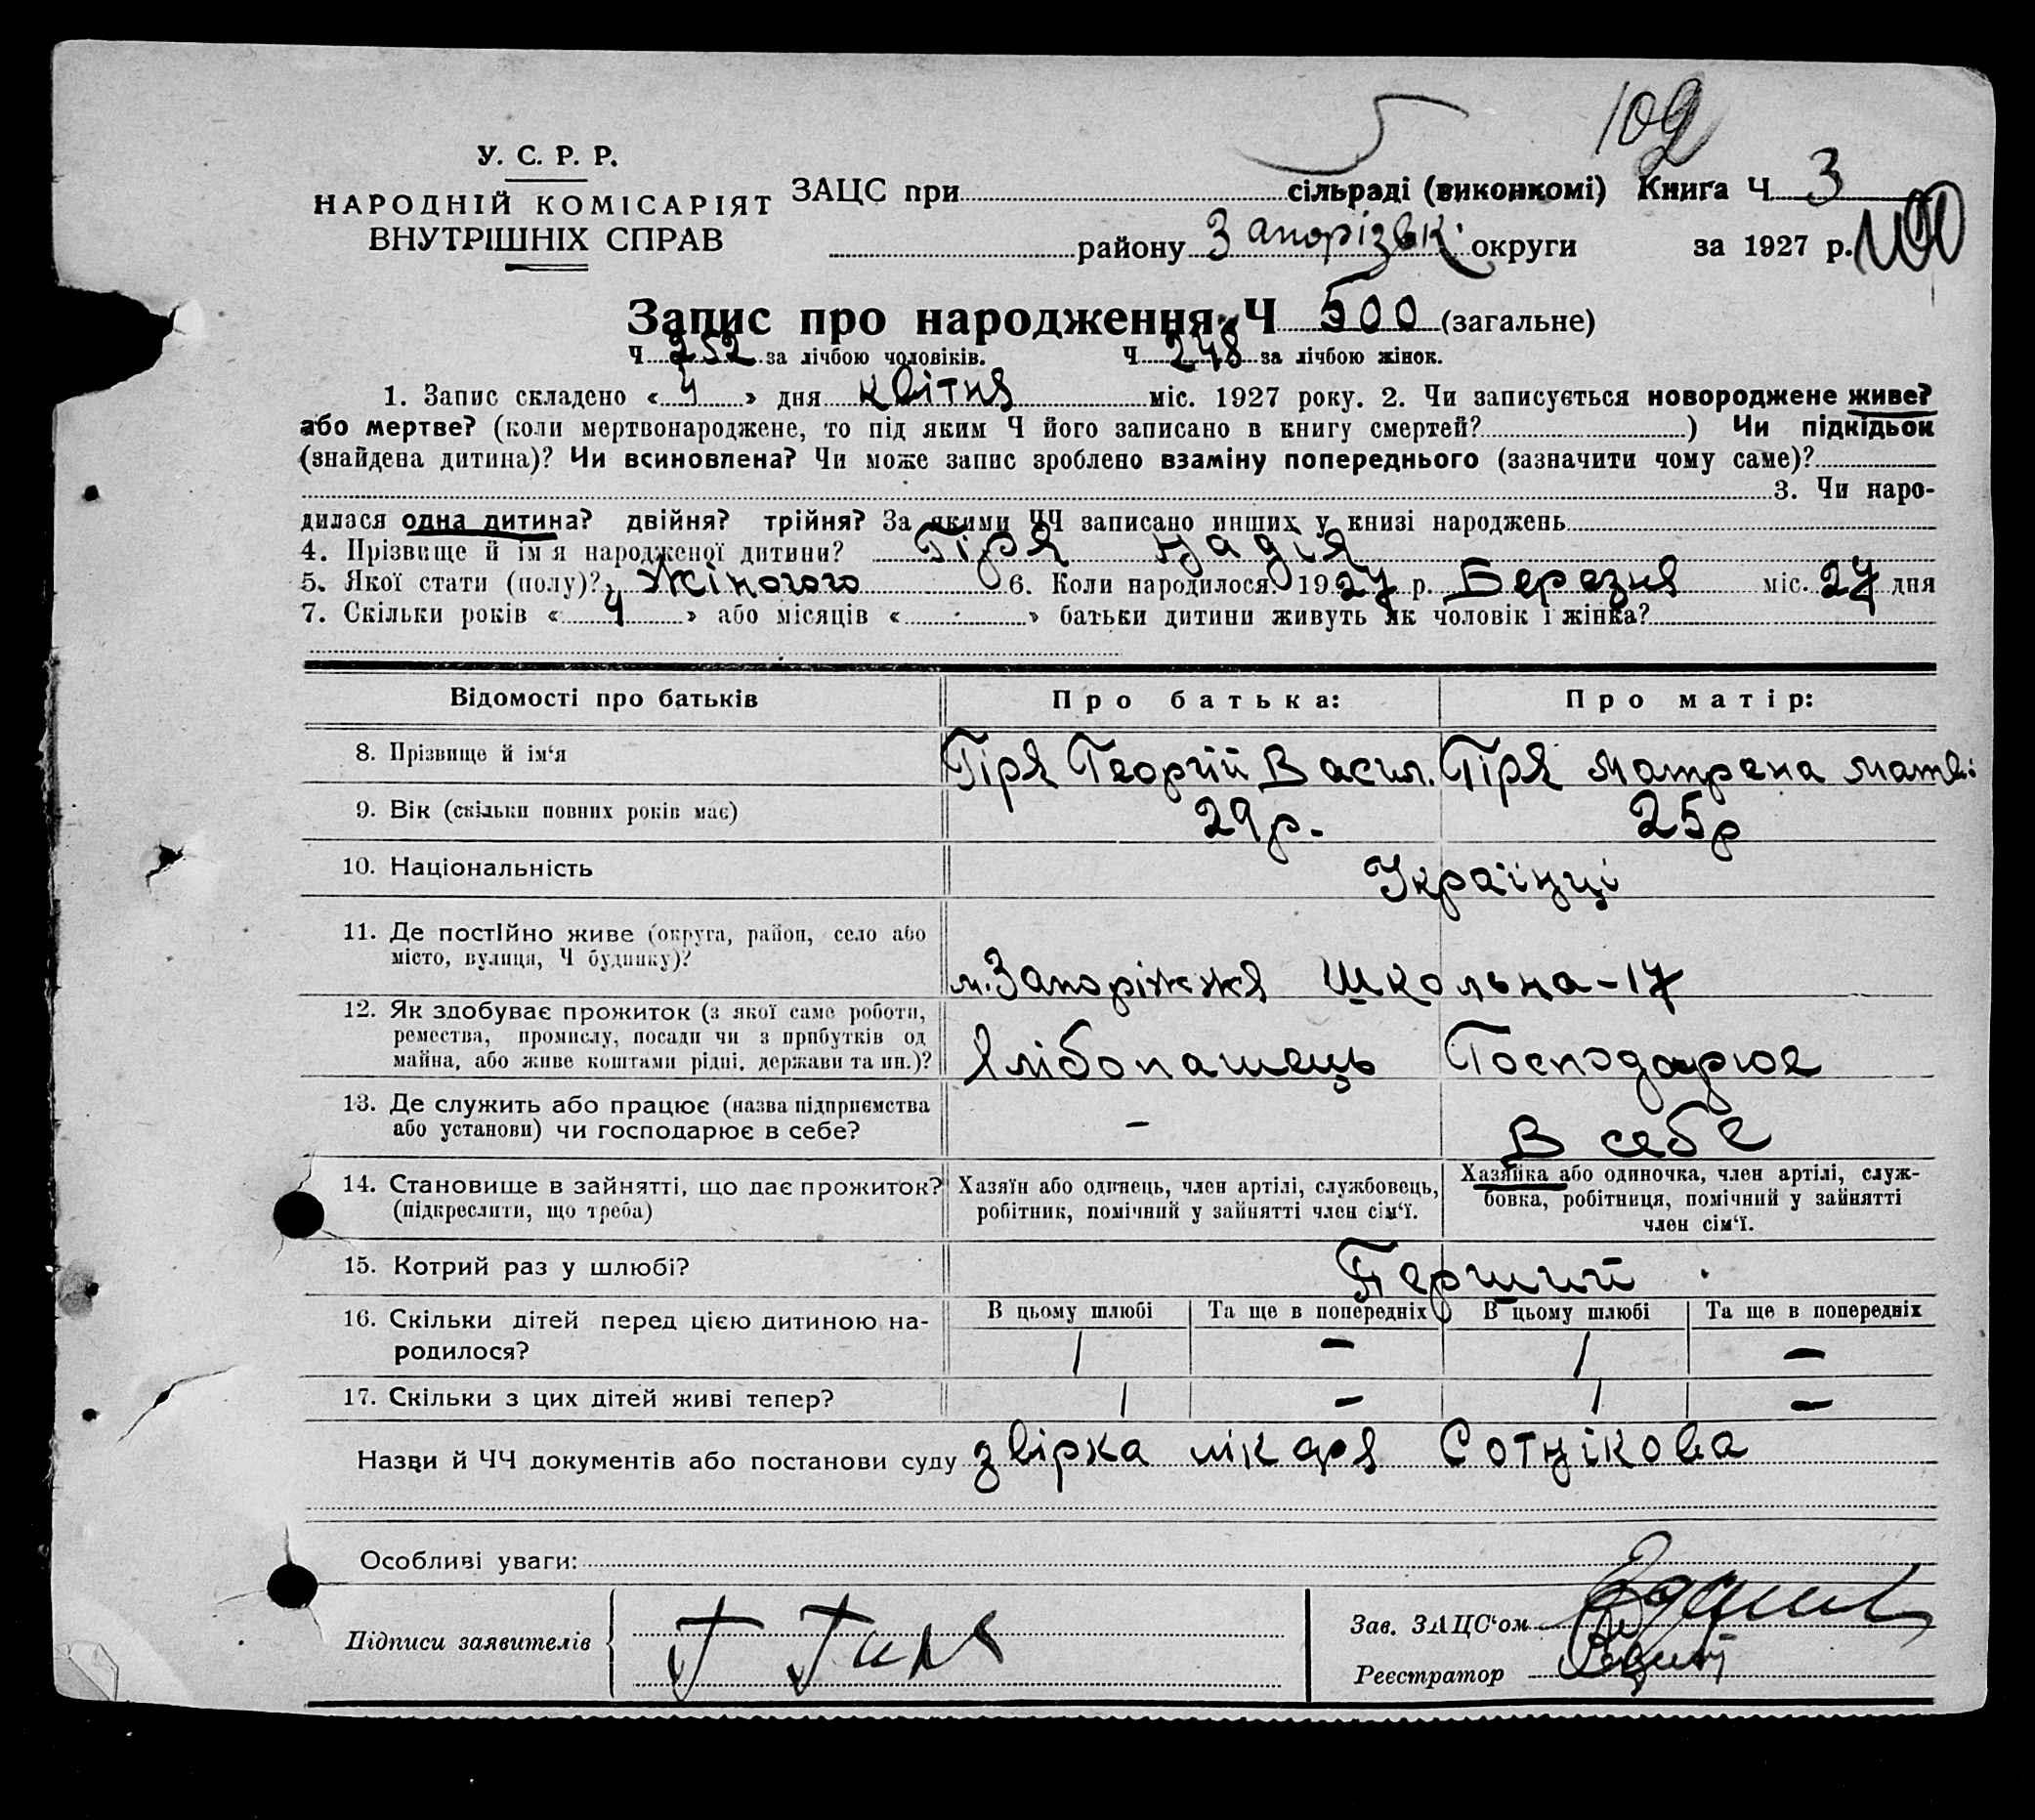 5 102
У. С. Р. Р.
НАРОДНІЙ КОМІСАРІЯТ
ВНУТРІШНІХ СПРАВ
ЗАЦС при сільраді (виконкомі) Книга Ч 3
району Запорізьк. округи за 1927 р. 100
Запис про народження Ч 500 (загальне)
Ч 252 за лічбою чоловіків. Ч 248 за лічбою жінок.
1. Запис складено « 4 » дня квітня міс. 1927 року. 2. Чи записується новороджене живе?
або мертве? (коли мертвонароджене, то під яким Ч його записано в книгу смертей? ) Чи підкідьок
(знайдена дитина)? Чи всиновлена? Чи може запис зроблено взаміну попереднього (зазначити чому саме)?
3. Чи наро-
дилася одна дитина? двійня? трійня? За якими ЧЧ записано инших у книзі народжень
4. Прізвище й ім'я народженої дитини? Гіря Надія
5. Якої стати (полу)? Жіночого 6. Коли народилося? 1927 р. Березня міс. 27 дня
7. Скільки років « 4 » або місяців « - » батьки дитини живуть як чоловік і жінка?
Відомості про батьків Про батька: Про матір:
8. Прізвище й ім'я Гіря Георгій Васил. Гіря Матрена Матв.
9. Вік (скільки повних років має) 29 р. 25 р
10. Національність Українці
11. Де постійно живе (округа, район, село або
місто, вулиця, Ч будинку)? м. Запоріжжя Школьна-17
12. Як здобуває прожиток (з якої саме роботи,
ремества, промислу, посади чи з прибутків од
майна, або живе коштами рідні, держави та ин.)? Хлібопашець Господарює
13. Де служить або працює (назва підприємства
або установи) чи господарює в себе? - В себе
14. Становище в зайнятті, що дає прожиток?
(підкреслити, що треба)
Хазяїн або одинець, член артілі, службовець,
робітник, помічний у зайнятті член сім'ї.
Хазяйка або одиночка, член артілі, служ-
бовка, робітниця, помічний у зайнятті
член сім'ї.
15. Котрий раз у шлюбі? Перший
В цьому шлюбі Та ще в попередніх В цьому шлюбі Та ще в попередніх
16. Скільки дітей перед цією дитиною на-
родилося? 1 - 1 -
17. Скільки з цих дітей живі тепер? 1 - 1 -
Назви й ЧЧ документів або постанови суду звірка лікаря Сотнікова
Особливі уваги:
Підписи заявителів Г Гиря
Зав. ЗАЦС'ом
Реєстратор